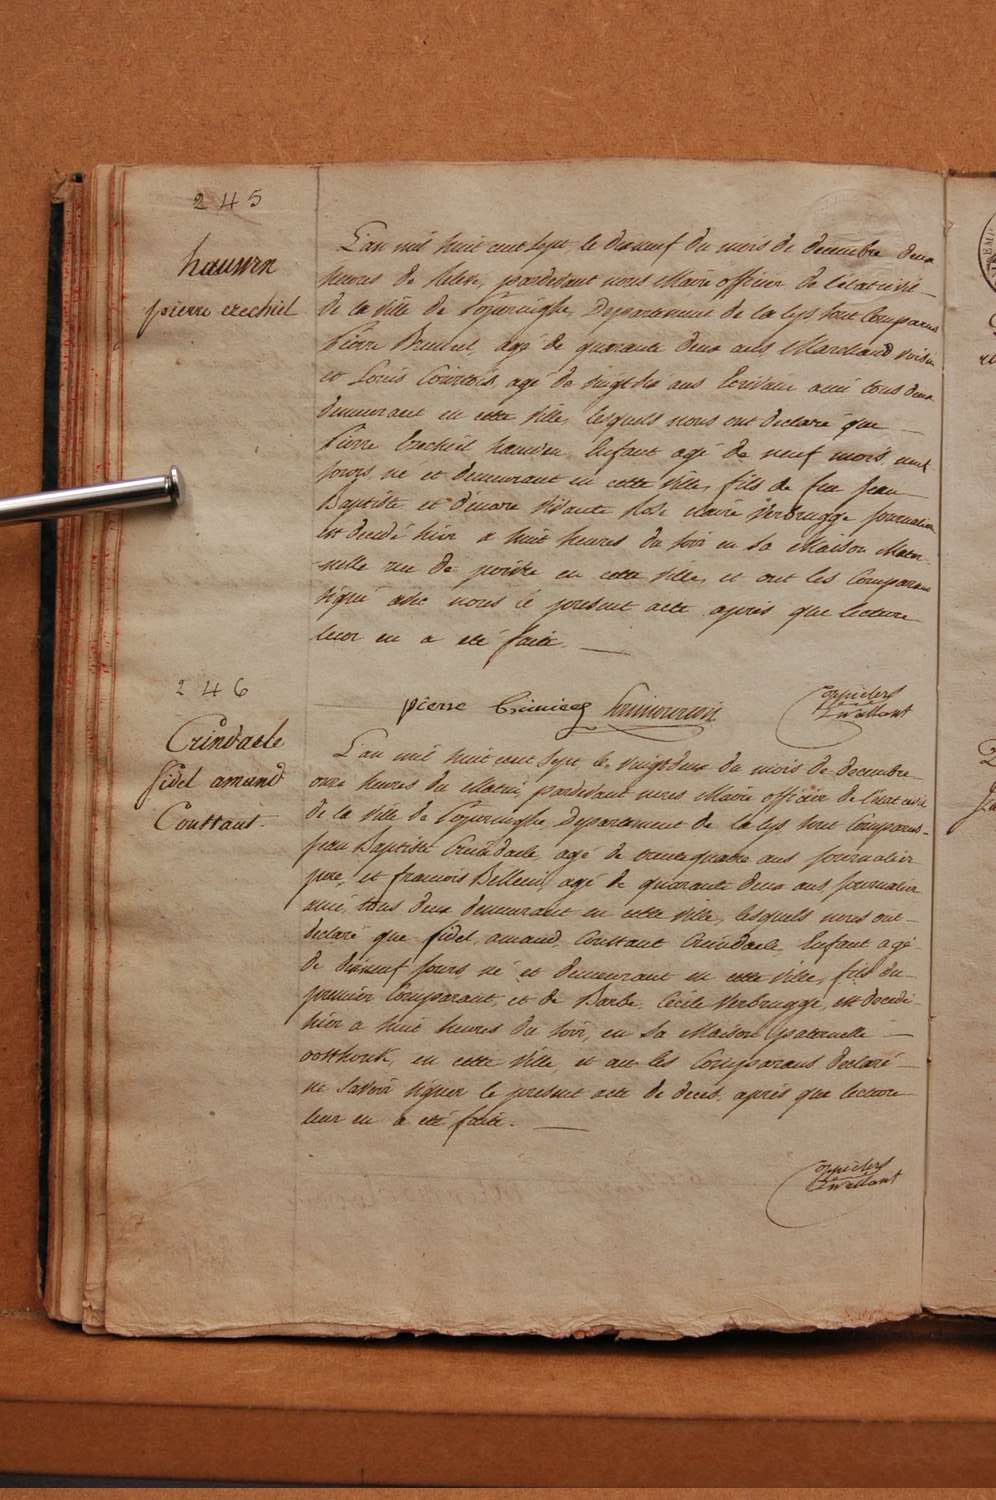 245
hauwen
pierre ezechiel
L'an mil huit cent sept, le dixneuf du mois de decembre deux
heures de relevée, pardevant nous Maire officier de l'etat civil
de la ville de Poperinghe, Departement de la lys sont Comparus
Pierre agé de quarante deux ans Marchand voisin
et Louis Courtois, agé de vingt dix ans Ecrivain ami tous deux
demeurant en cette ville, lesquels nous ont declaré que
Pierre Ezechiel hauwen, Enfant agé de neuf mois,
jours, né et demeurant en cette ville, fils de feu Jean
Baptiste et d'encore vivante Rose claire Verbrugge journaliere
est decedé hier a huit heures du soir en sa Maison Mater-
nelle rue de en cette ville, et ont les Comparans
signé avec nous le present acte, après que lecture
leur en a eté faite.
pierre
246
Crindaele
fidel amand
Constant
L'an mil huit cent sept le vingtdeux du mois de decembre
onze heures du Matin, pardevant nous Maire officier de l'etat civil
de la ville de Poperinghe Departement de la lys sont Comparus
Jean Baptiste Crindaele, agé de trente quatre ans journalier
pere, et francois agé de quarante deux ans journalier
ami, tous deux demeurant en cette ville, lesquels nous ont
declaré que fidel, amand, Constant Crindaele, Enfant agé
de dixneuf jours né et demeurant en cette ville, fils du
premier Comparant, et de Barbe, Cecile Verbrugge, est decedé
hier a huit heures du soir, en sa Maison paternelle
oosthouk, en cette ville, et ont les Comparans declaré
ne savoir signer le present acte de deces, après que lecture
leur en a eté faite.